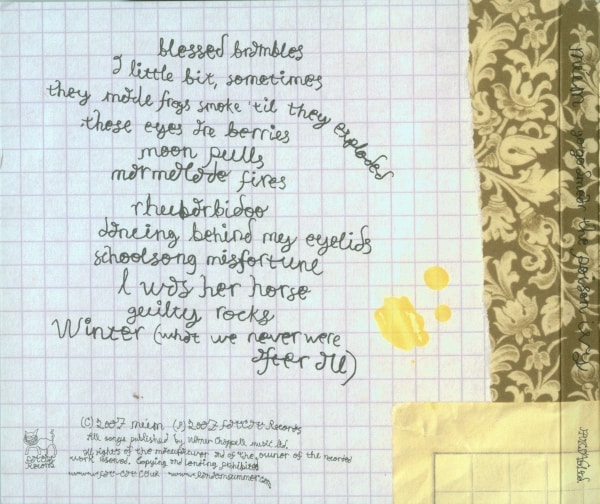 blessed brambles
A little bit, sometimes
they made frogs smoke 'til they exploded
these eyes are berries
moon pulls
marmalade fires
rhuubarbidoo
dancing behind my eyelids
schoolsong misfortune
I was her horse
guilty rocks
Winter (what we never were
after all)
(C) 2007 múm (P) 2007 FatCat Records
All songs published by Warner Chappell Music Ltd.
All rights of the manufacturer and of the owner of the recorded
work reserved. Copying and lending prohibited
www.fat-cat.co.uk www.randomsummer.com
fatcat
records
múm go go smear the poison ivy